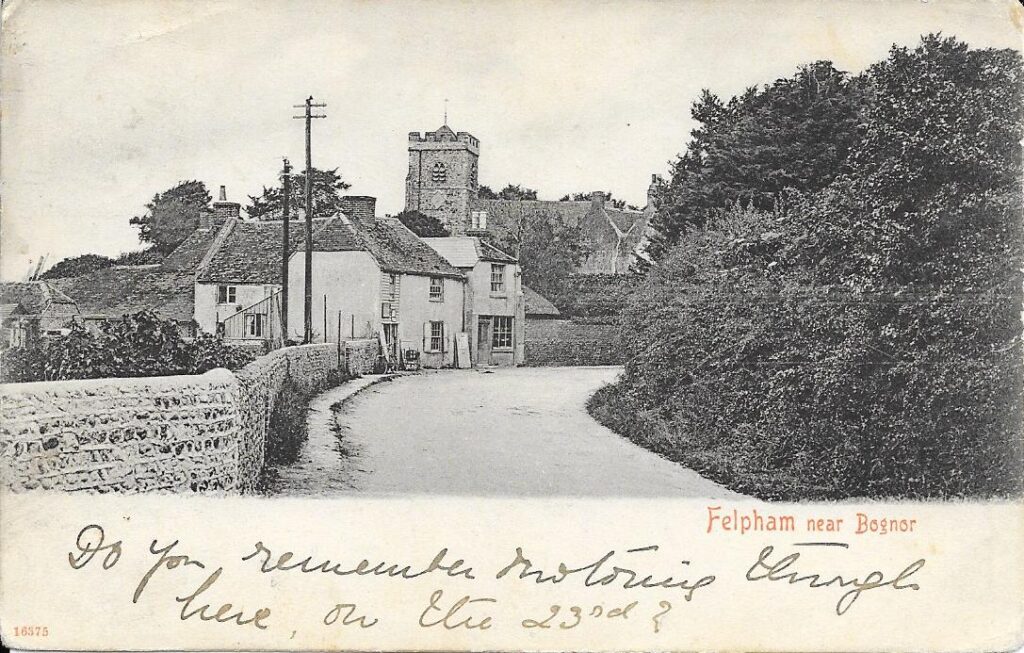 Felpham near Bognor
Do you remember motoring through
here, on the 23rd?
16375